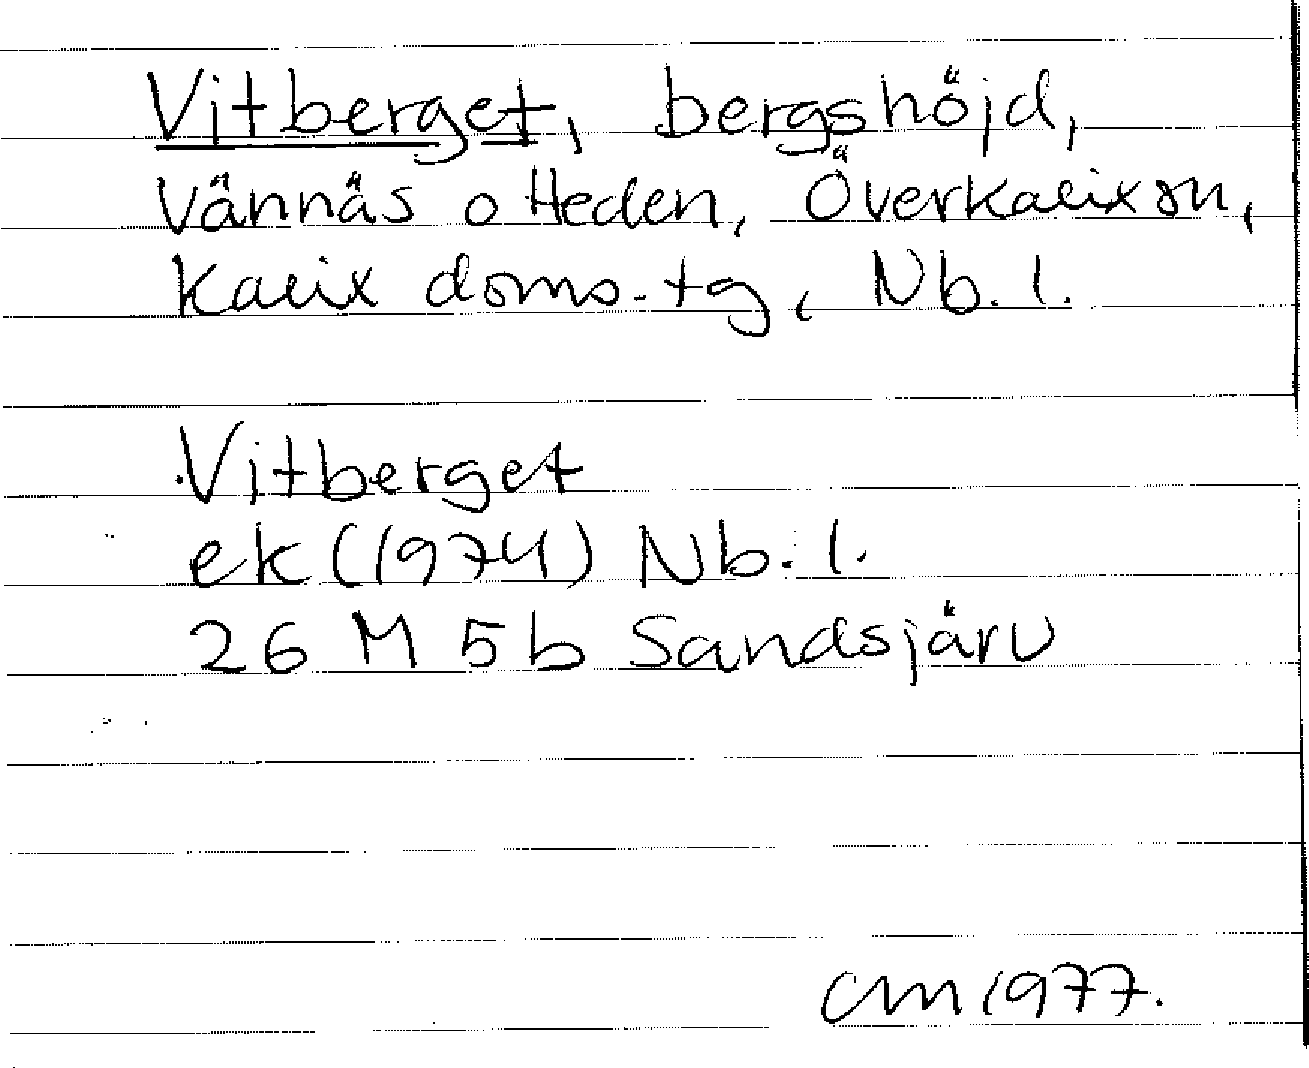 Vitberget, bergshöjd,
Vännäs o Heden, Överkalix sn,
Kalix doms.tg, Nb. l.
Vitberget
ek (1974) Nb. l.
26 M 5b Sandsjärv
CM 1977.